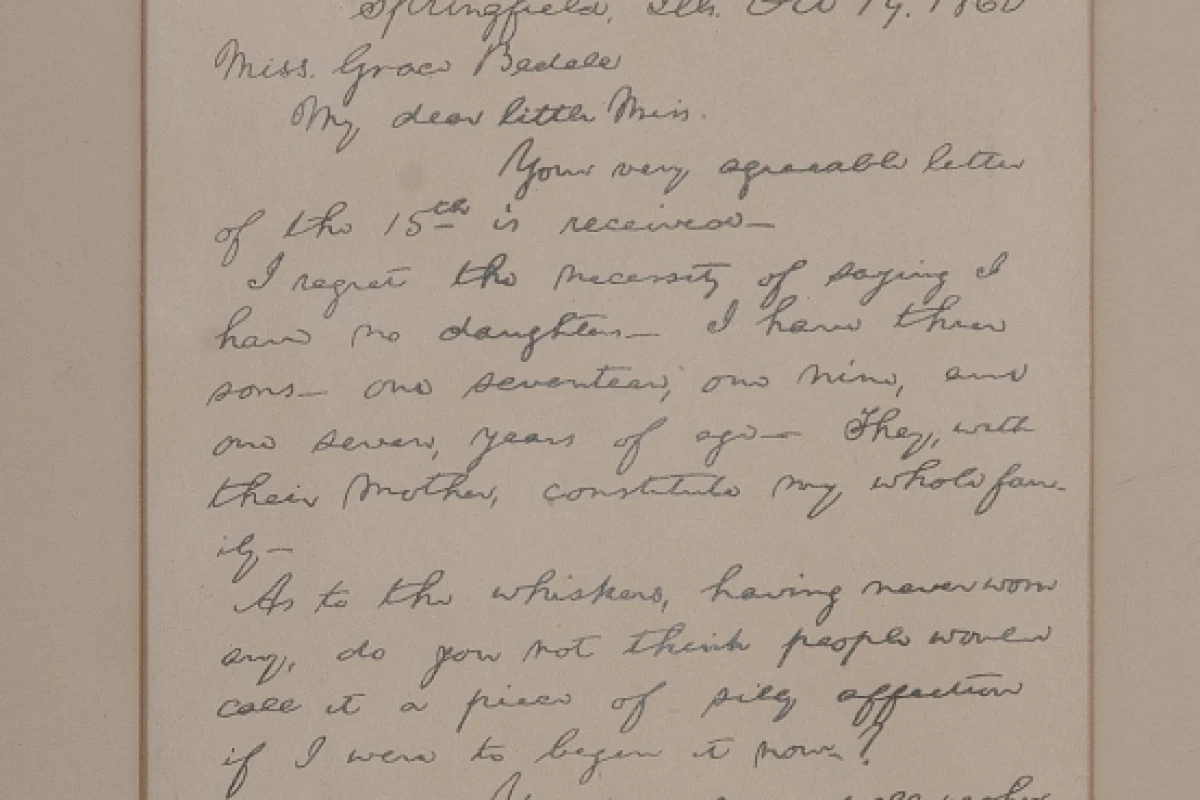 Springfield, Ills. Oct 19. 1860
Miss. Grace Bedell
My dear little Miss.
Your very agreeable letter
of the 15th is received—
I regret the necessity of saying I
have no daughters— I have three
sons— one seventeen, one nine, and
one seven, years of age— They, with
their Mother, constitute my whole fam-
ily—
As to the whiskers, having never worn
any, do you not think people would
call it a piece of silly affection
if I were to begin it now?